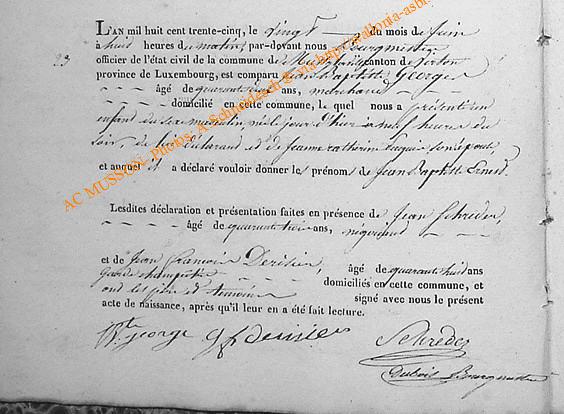 23
L'AN mil huit cent trente-cinq, le vingt du mois de Juin
à huit heures du matin, par-devant nous Bourgmestre
officier de l'état civil de la commune de Musson canton de Virton
province de Luxembourg, est comparu Jean Baptiste Georges
âgé de quarante ans, marchand
domicilié en cette commune, le quel nous a présenté un
enfant du sexe masculin, né le jour d'hier à neuf heures du
soir, de lui déclarant et de Jeanne Catherine son épouse,
et auquel il a déclaré vouloir donner les prénoms de Jean Baptiste Ernest.
Lesdites déclaration et présentation faites en présence de Jean Schreder,
âgé de quarante trois ans, négociant
et de Jean François Derisier, âgé de quarante huit ans
Garde champêtre domiciliés en cette commune, et
ont les père et témoins signé avec nous le présent
acte de naissance, après qu'il leur en a été fait lecture.
george Schreder
Dubois Bourgmestre
AC MUSSON- Photos: A. Schmedesch @ via http://wallonia-asbl